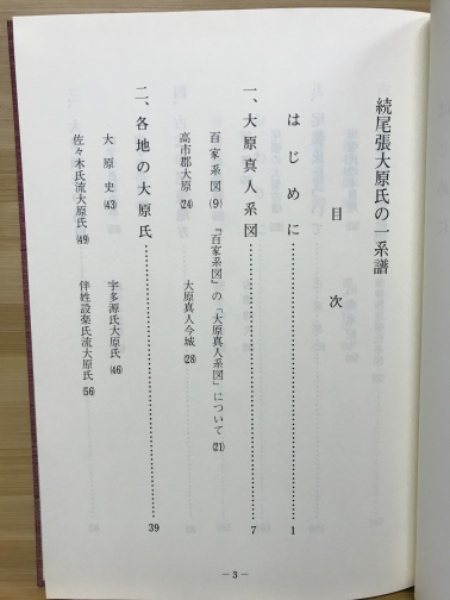 続尾張大原氏の一系譜
目次
はじめに……………………1
一、大原真人系図……………………7
百家系図(9) 『百家系図』の「大原真人系図」について(21)
高市郡大原(24) 大原真人今城(28)
二、各地の大原氏……………………39
大原史(43) 宇多源氏大原氏(46)
佐々木氏流大原氏(49) 伴姓設楽氏流大原氏(56)
―3―